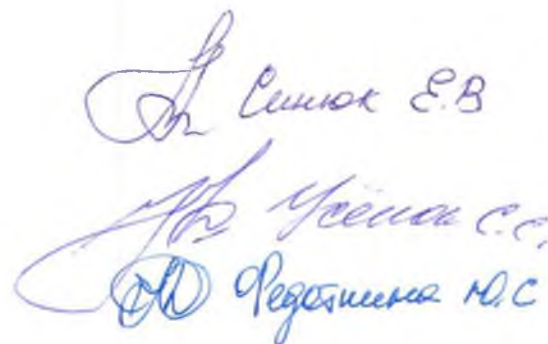 Синюк Е.В
Усёнок С.С.
Федоткина Ю.С